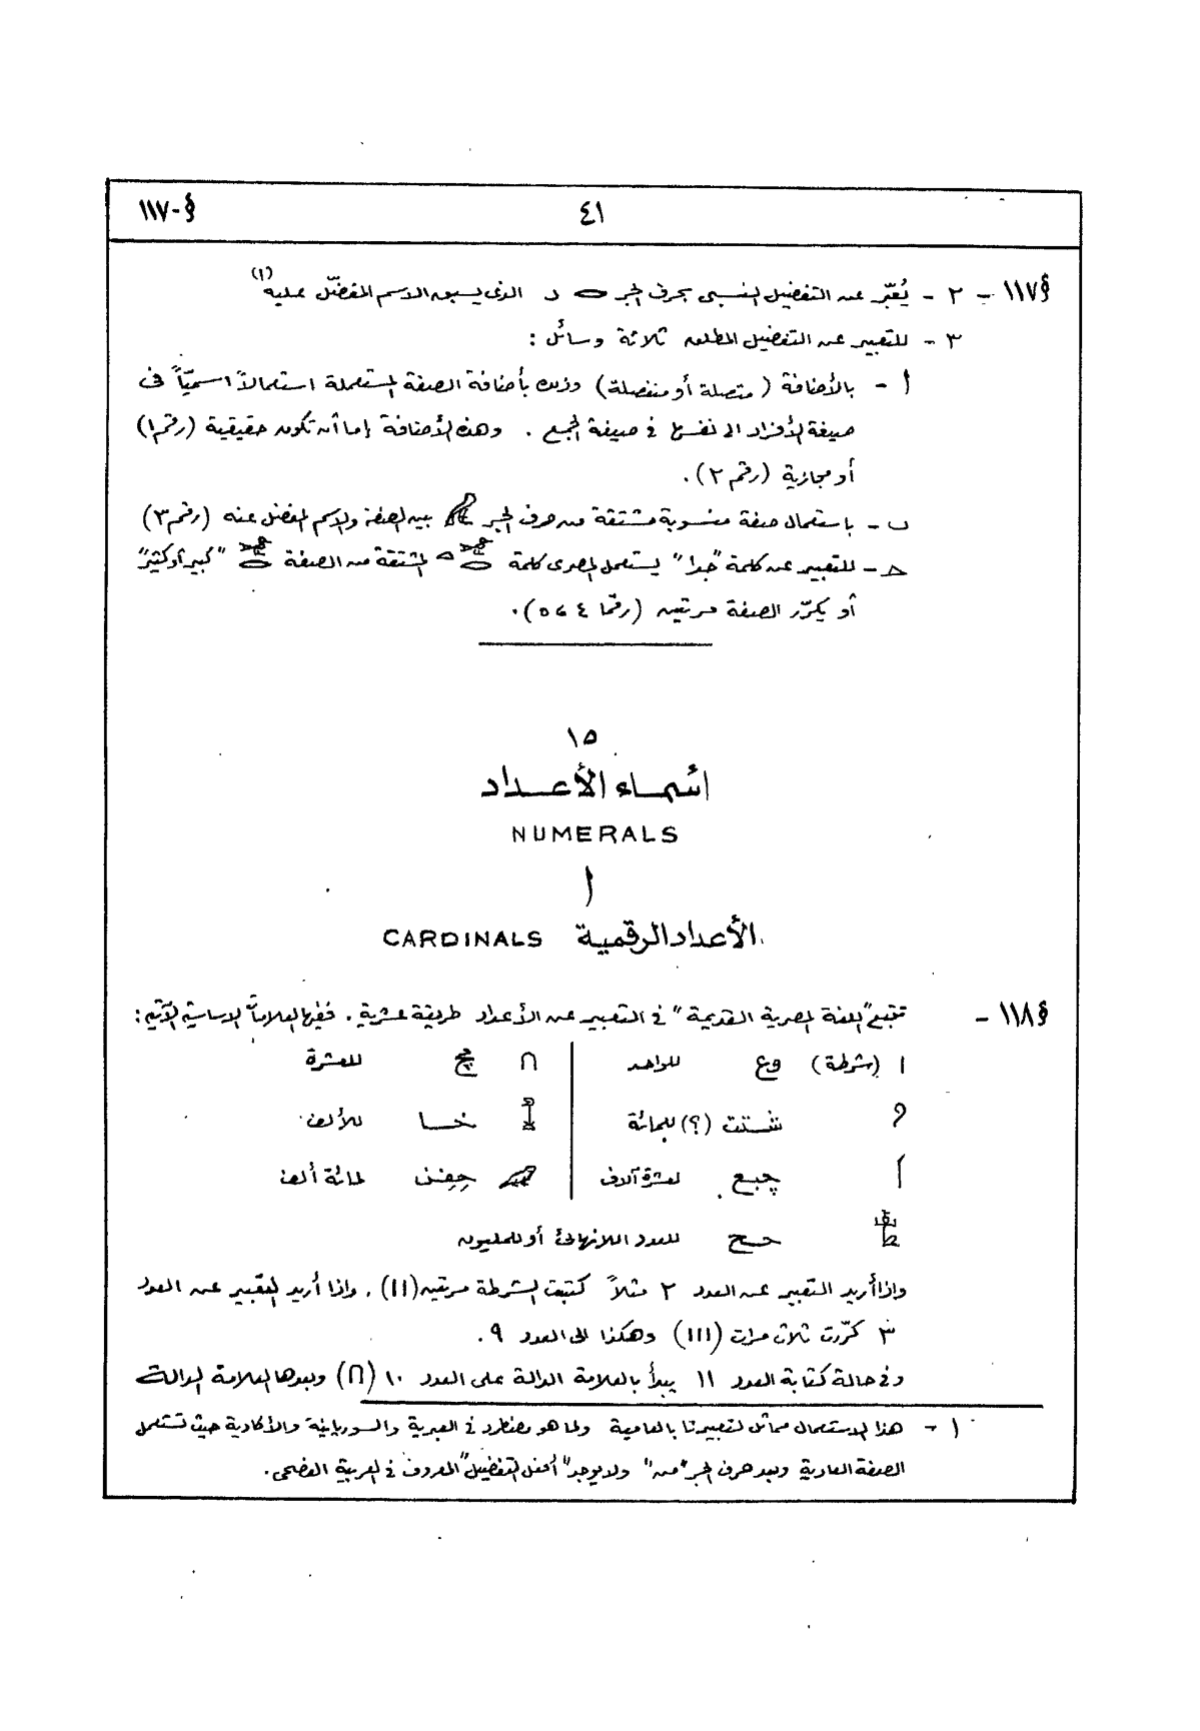 §-١١٧ ٤١
§١١٧ - ٢ - يُعَبّر عن التفضيل النسبى بحرف الجر 𓂋 ر الذى يسبق الاسم المفضّل عليه (١)
٣ - للتعبير عن التفضيل المطلق ثلاثة وسائل :
أ - بالأضافة (متصلة أو منفصلة) وذلك بأضافة الصفة المستعملة استعمالاً اسميّاً فى
صيغة الأفراد الى نفسها فى صيغة الجمع . وهذه الأضافة إما أن تكون حقيقية (رقم ١)
أو مجازية (رقم ٢).
ب - باستعمال صفة منسوبة مشتقة من حرف الجر 𓅓 بين الصفة والاسم المفضل عنه (رقم ٣)
جـ - للتعبير عن كلمة "جدا" يستعمل المصرى كلمة المشتقة من الصفة "كبير أو كثير"
أو يكرّر الصفة مرتين (رقما ٤ ، ٥).
١٥
أسماء الأعداد
NUMERALS
أ
الأعداد الرقمية CARDINALS
§١١٨ - تتبع "اللغة المصرية القديمة" فى التعبير عن الأعداد طريقة عشرية . ففيها العلامات الاساسية الآتية :
𓏤 (شرطة) وع للواحد 𓎆 مچ للعشرة
𓍢 شتت (؟) للمائة 𓆼 خا للألف
𓂭 چبع لعشرة آلاف 𓆐 حفن لمائة ألف
𓁨 حح للعدد اللانهائى أو للمليون
واذا أريد التعبير عن العدد ٢ مثلاً كتبت الشرطة مرتين (II) ، واذا أريد التعبير عن العدد
٣ كرّرت ثلاث مرات (III) وهكذا الى العدد ٩ .
وفى حالة كتابة العدد ١١ يبدأ بالعلامة الدالة على العدد ١٠ (𓎆) وبعدها العلامة الدالة
١ - هذا الاستعمال مماثل لتعبيرنا بالعامية ولما هو مضطرد فى العبرية والسوريانية والأكادية حيث تستعمل
الصفة العادية وبعد حرف الجر "من" ولا يوجد "أفعل التفضيل" المعروف فى العربية الفصحى .